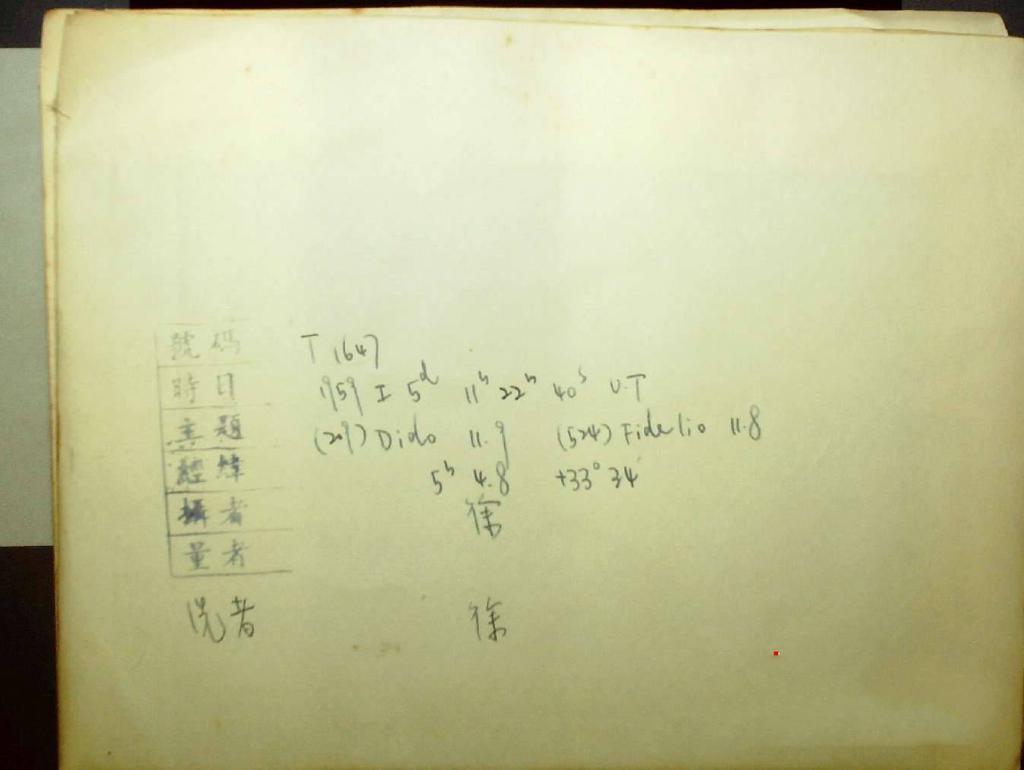 號碼 T 1647
時日 1959 I 5ᵈ 11ʰ 22ʰ 40ˢ U.T
主題 (209) Dido 11.9 (524) Fidelio 11.8
經緯 5ʰ 4.8 +33° 34'
攝者 徐
量者
洗者 徐